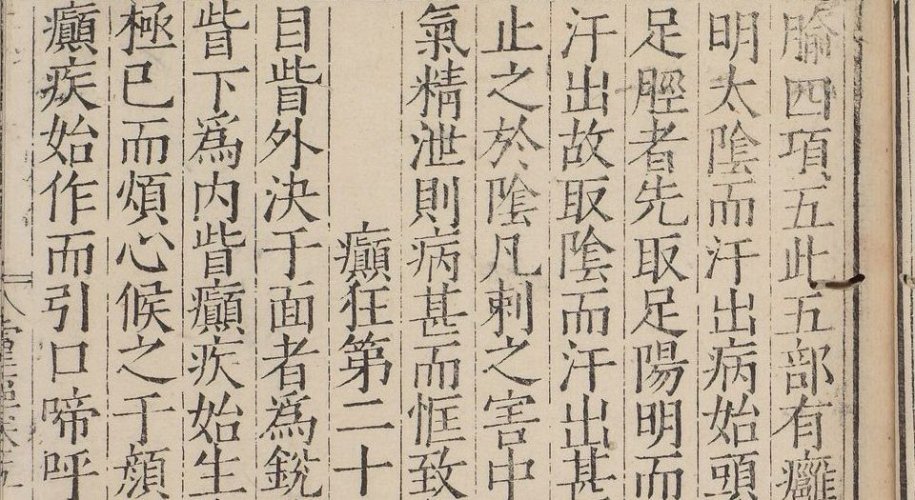 腧四項五此五部有癰
明太陰而汗出病始頭
足脛者先取足陽明而
汗出故取陰而汗出甚
止之於陰凡刺之害中
氣精泄則病甚而恇致
癲狂第二十
目眥外決于面者為銳
眥下為內眥癲疾始生
極已而煩心候之于顏
癲疾始作而引口啼呼